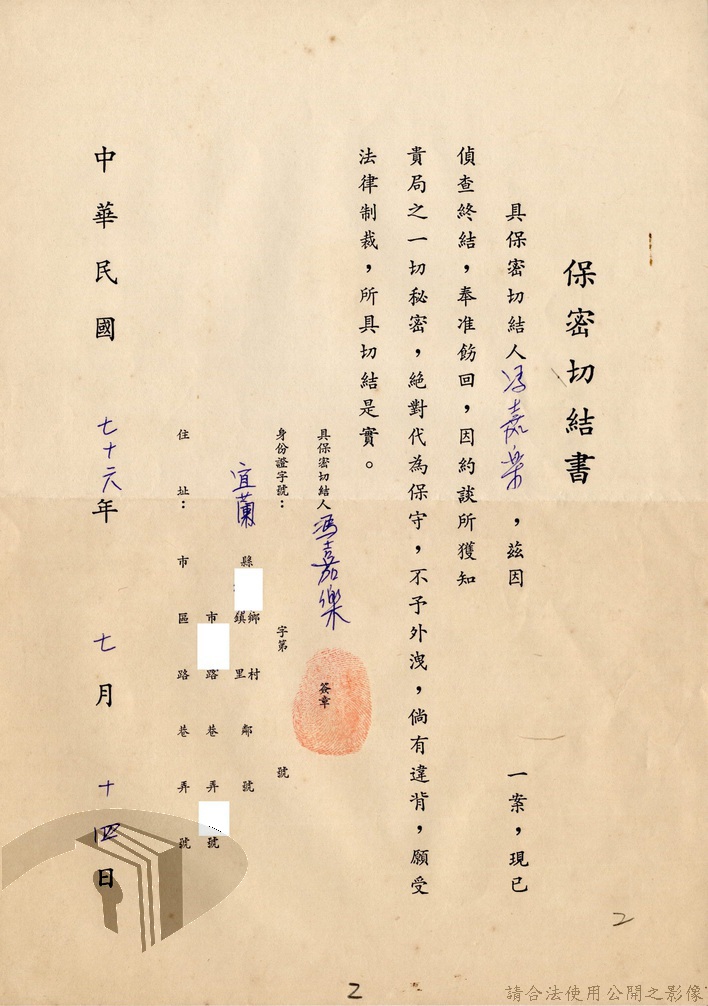 保密切結書
具保密切結人馮嘉樂，茲因　　　一案，現已
偵查終結，奉准飭回，因約談所獲知
貴局之一切秘密，絕對代為保守，不予外洩，倘有違背，願受
法律制裁，所具切結是實。
具保密切結人馮嘉樂　簽章
身份證字號：　字第　號
宜蘭縣　鄉鎮　村里　鄰　號
市　路　巷　弄　號
住址：　市　區　路　巷　弄　號
中華民國　七十六年　七月　十四日
2
2
請合法使用公開之影像